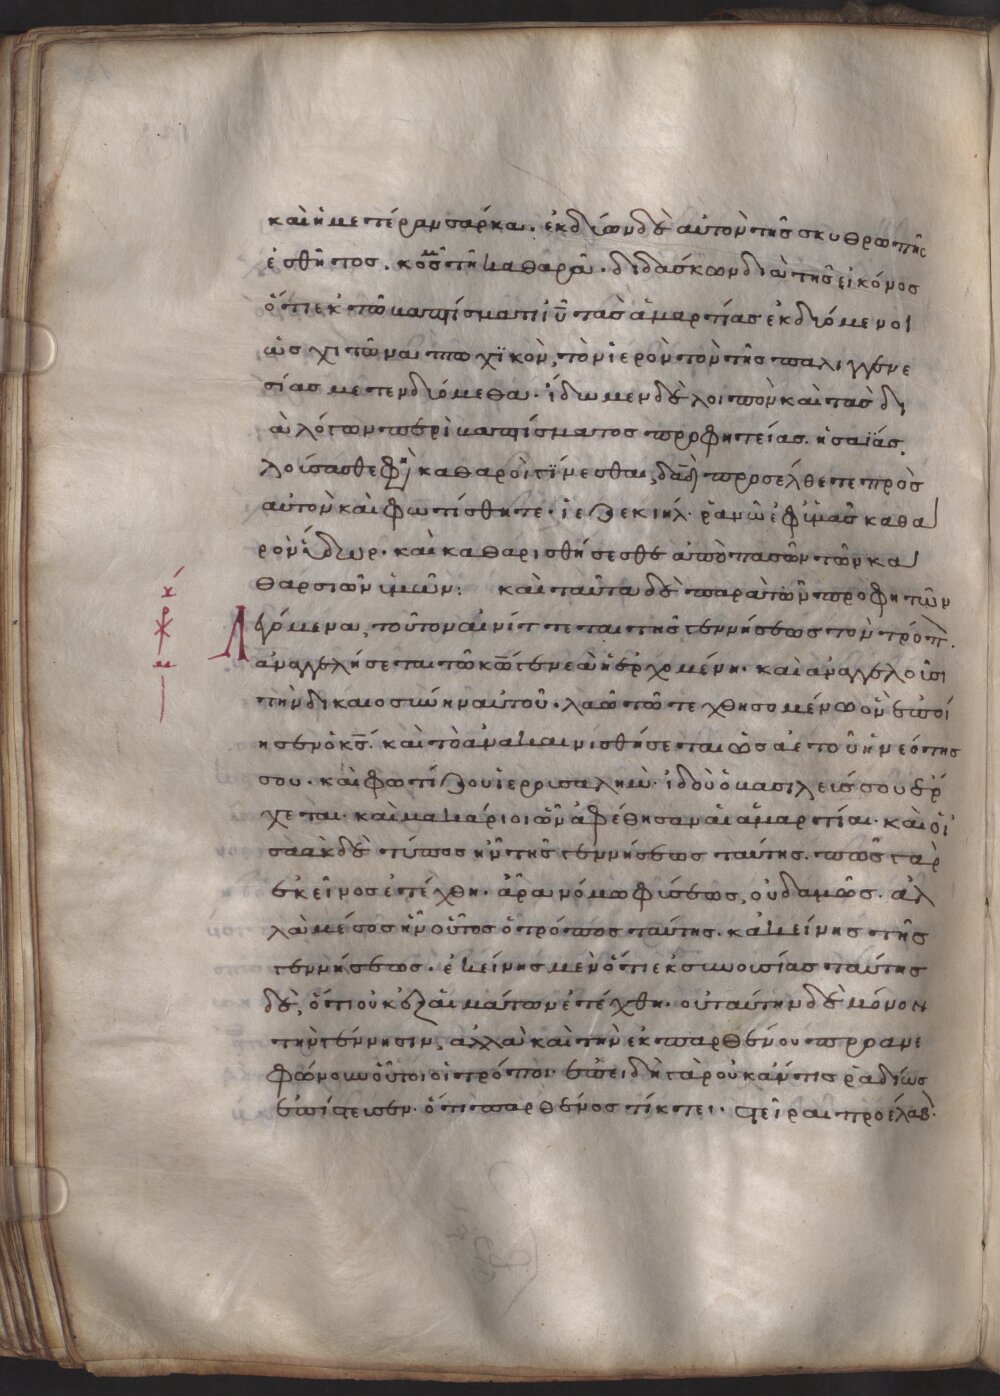 καὶ ἡμετέραν σάρκα. ἐκδύων δὲ αὐτὸν τῆς σκυθρωπῆς
ἐσθῆτος. κοσμεῖ τῆ καθαρᾶ. διδάσκων διὰ τῆς εἰκόνος
ὅτι ἐκ τῶ βαπτίσματι τὰς ἁμαρτίας ἐκδυόμενοι
ὡς χιτῶνα πτωχικὸν, τὸν ἱερὸν τὸν τῆς παλιγγενε
σίας μετενδυόμεθα. ἴδωμεν δὲ λοιπὸν καὶ τὰς δι
ἀλόγων περὶ βαπτίσματος προφητείας. ἡσαΐας.
λούσασθε φη καθαροὶ γίνεσθαι, δαδ προσέλθετε πρὸς
αὐτὸν καὶ φωτίσθητε. ἰεζεκιήλ. ρανῶ ἐφ ὑμᾶς καθα
ρὸν ὕδωρ. καὶ καθαρισθήσεσθε ἀπὸ πασῶν τῶν κα
θαρσιῶν ὑμῶν: καὶ ταῦτα δὲ παρὰ τῶν προφητῶν
Λεγόμενα, τοῦτον αἰνίττεται τῆς γεννήσεως τὸν τρόπ.
ἀναγγελήσεται τῶ κω γενεὰ ἡ ἐρχομένη. καὶ ἀναγγελοῦσι
τὴν δικαιοσύνην αὐτοῦ. λαῶ τῶ τεχθησομένω ὃν ἐποί
ησεν ὁ κς. καὶ τὸ ἀνακαινισθήσεται ὡς ἀετοῦ ἡ νεότης
σου. καὶ φωτίζου ἱερουσαλήμ. ἰδοὺ ὁ βασιλεύς σου ἔρ
χεται. καὶ μακάριοι ὧν ἀφέθησαν αἱ ἁμαρτίαι. καὶ ὁ ἰ
σαὰκ δὲ τύπος ἦν τῆς γεννήσεως ταύτης. πῶς γὰρ
ἐκεῖνος ἐτέχθη. ἆρα νόμω φύσεως, οὐδαμῶς. ἀλ
λὰ μέσος ἦν οὗτος ὁ τρόπος ταύτης. κἀκείνης τῆς
γεννήσεως. ἐκείνης μὲν ὅτι ἐκ συνουσίας ταύτης
δὲ, ὅτι οὐκ ἐξ αἱμάτων ἐτέχθη. οὐ ταύτην δὲ μόνον
τὴν γέννησιν, ἀλλὰ καὶ τὴν ἐκ παρθένου προανε
φώνουν οὗτοι οἱ τρόποι. ἐπειδὴ γὰρ οὐκ ἄν τις ῥαδίως
ἐπίστευσεν. ὅτι παρθένος τίκτει. στεῖραι προέλαβ.